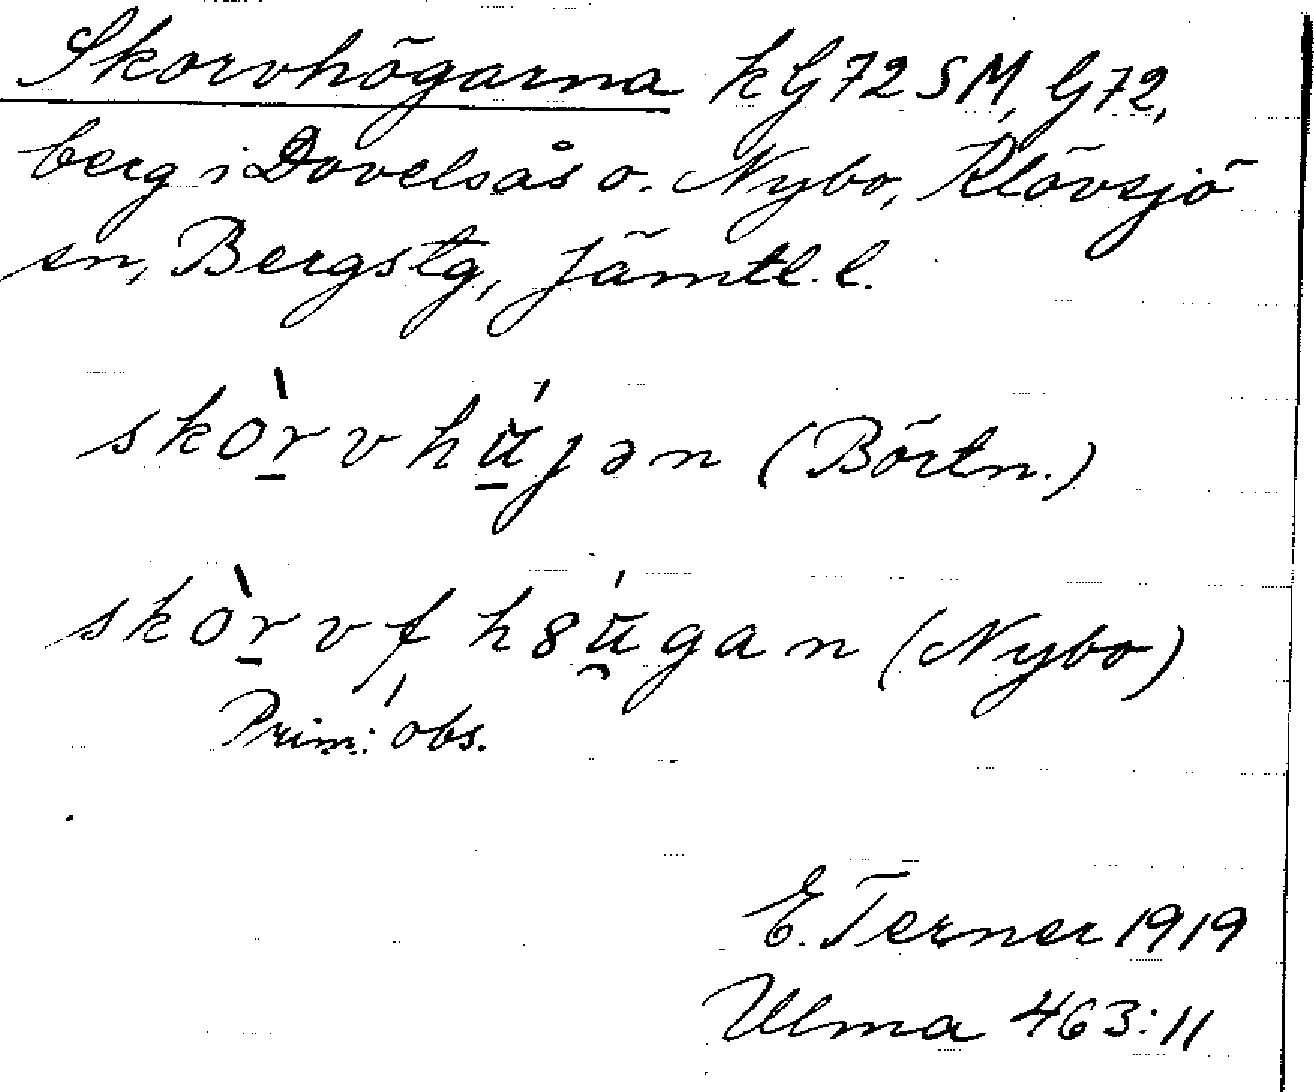 Skorvhögarna kG72SM, G72,
berg i Dovelsås o. Nybo, Klövsjö
sn, Bergs tg, Jämtl. l.
skòrvhu̇jən (Börtn.)
skòrvfhsůgan (Nybo)
Prim: obs.
E. Terner 1919
Ulma 463:11